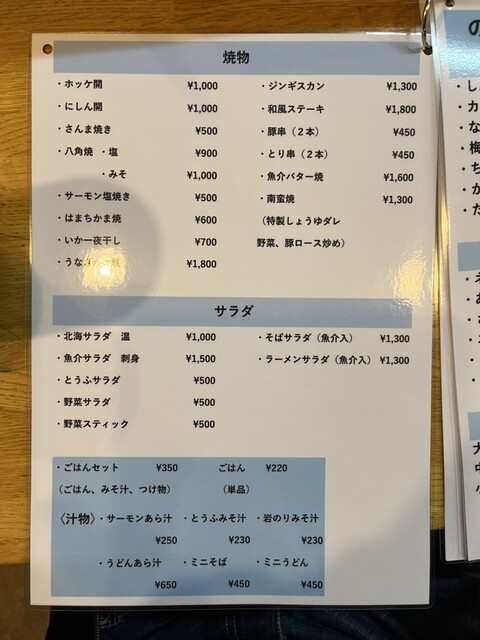 焼物
・ホッケ開 ¥1,000
・にしん開 ¥1,000
・さんま焼き ¥500
・八角焼 ・塩 ¥900
・みそ ¥1,000
・サーモン塩焼き ¥500
・はまちかま焼 ¥600
・いか一夜干し ¥700
・うな ¥1,800
・ジンギスカン ¥1,300
・和風ステーキ ¥1,800
・豚串（２本） ¥450
・とり串（２本） ¥450
・魚介バター焼 ¥1,600
・南蛮焼 ¥1,300
（特製しょうゆダレ
野菜、豚ロース炒め）
サラダ
・北海サラダ 温 ¥1,000
・魚介サラダ 刺身 ¥1,500
・とうふサラダ ¥500
・野菜サラダ ¥500
・野菜スティック ¥500
・そばサラダ（魚介入） ¥1,300
・ラーメンサラダ（魚介入） ¥1,300
・ごはんセット ¥350 ごはん ¥220
（ごはん、みそ汁、つけ物） （単品）
〈汁物〉・サーモンあら汁 ・とうふみそ汁 ・岩のりみそ汁
¥250 ¥230 ¥230
・うどんあら汁 ・ミニそば ・ミニうどん
¥650 ¥450 ¥450